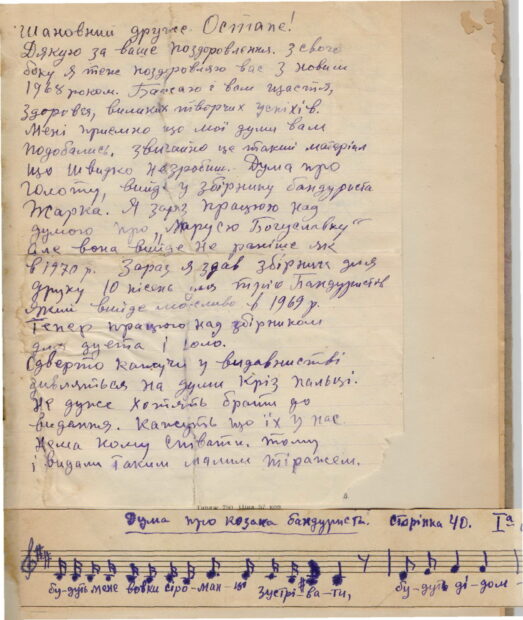 Шановний друже Остапе!
Дякую за ваше поздоровлення. З свого
боку я теж поздоровляю вас з новим
1968 роком. Бажаю і вам щастя,
здоровья, великих творчих успіхів.
Мені приємно що мої думи вам
подобались. Звичайно це такий матеріал
що швидко незробиш. Дума про
голоту, вийде у збірнику бандуриста
Жарка. Я зараз працюю над
думою про „Марусю Богуславку"
але вона вийде не раніше як
в 1970 р. Зараз я здав збірник для
друку 10 пісень для тріо Бандуристів
який вийде можливо в 1969 р.
Тепер працюю над збірником
для дуета і соло.
Одверто кажучи у видавнистві
дивляться на думи крізь пальці.
Не дуже хотять брати до
видання. Кажуть що їх у нас
нема кому співати. тому
і видали таким малим тіражем.
Тираж 750 Ціна 57 коп
Дума про козака бандуриста. Сторінка 40. Iа
бу-дуть мене вовки сіро-ман-ці зустрі-ва-ти, бу-дуть ді-дом-